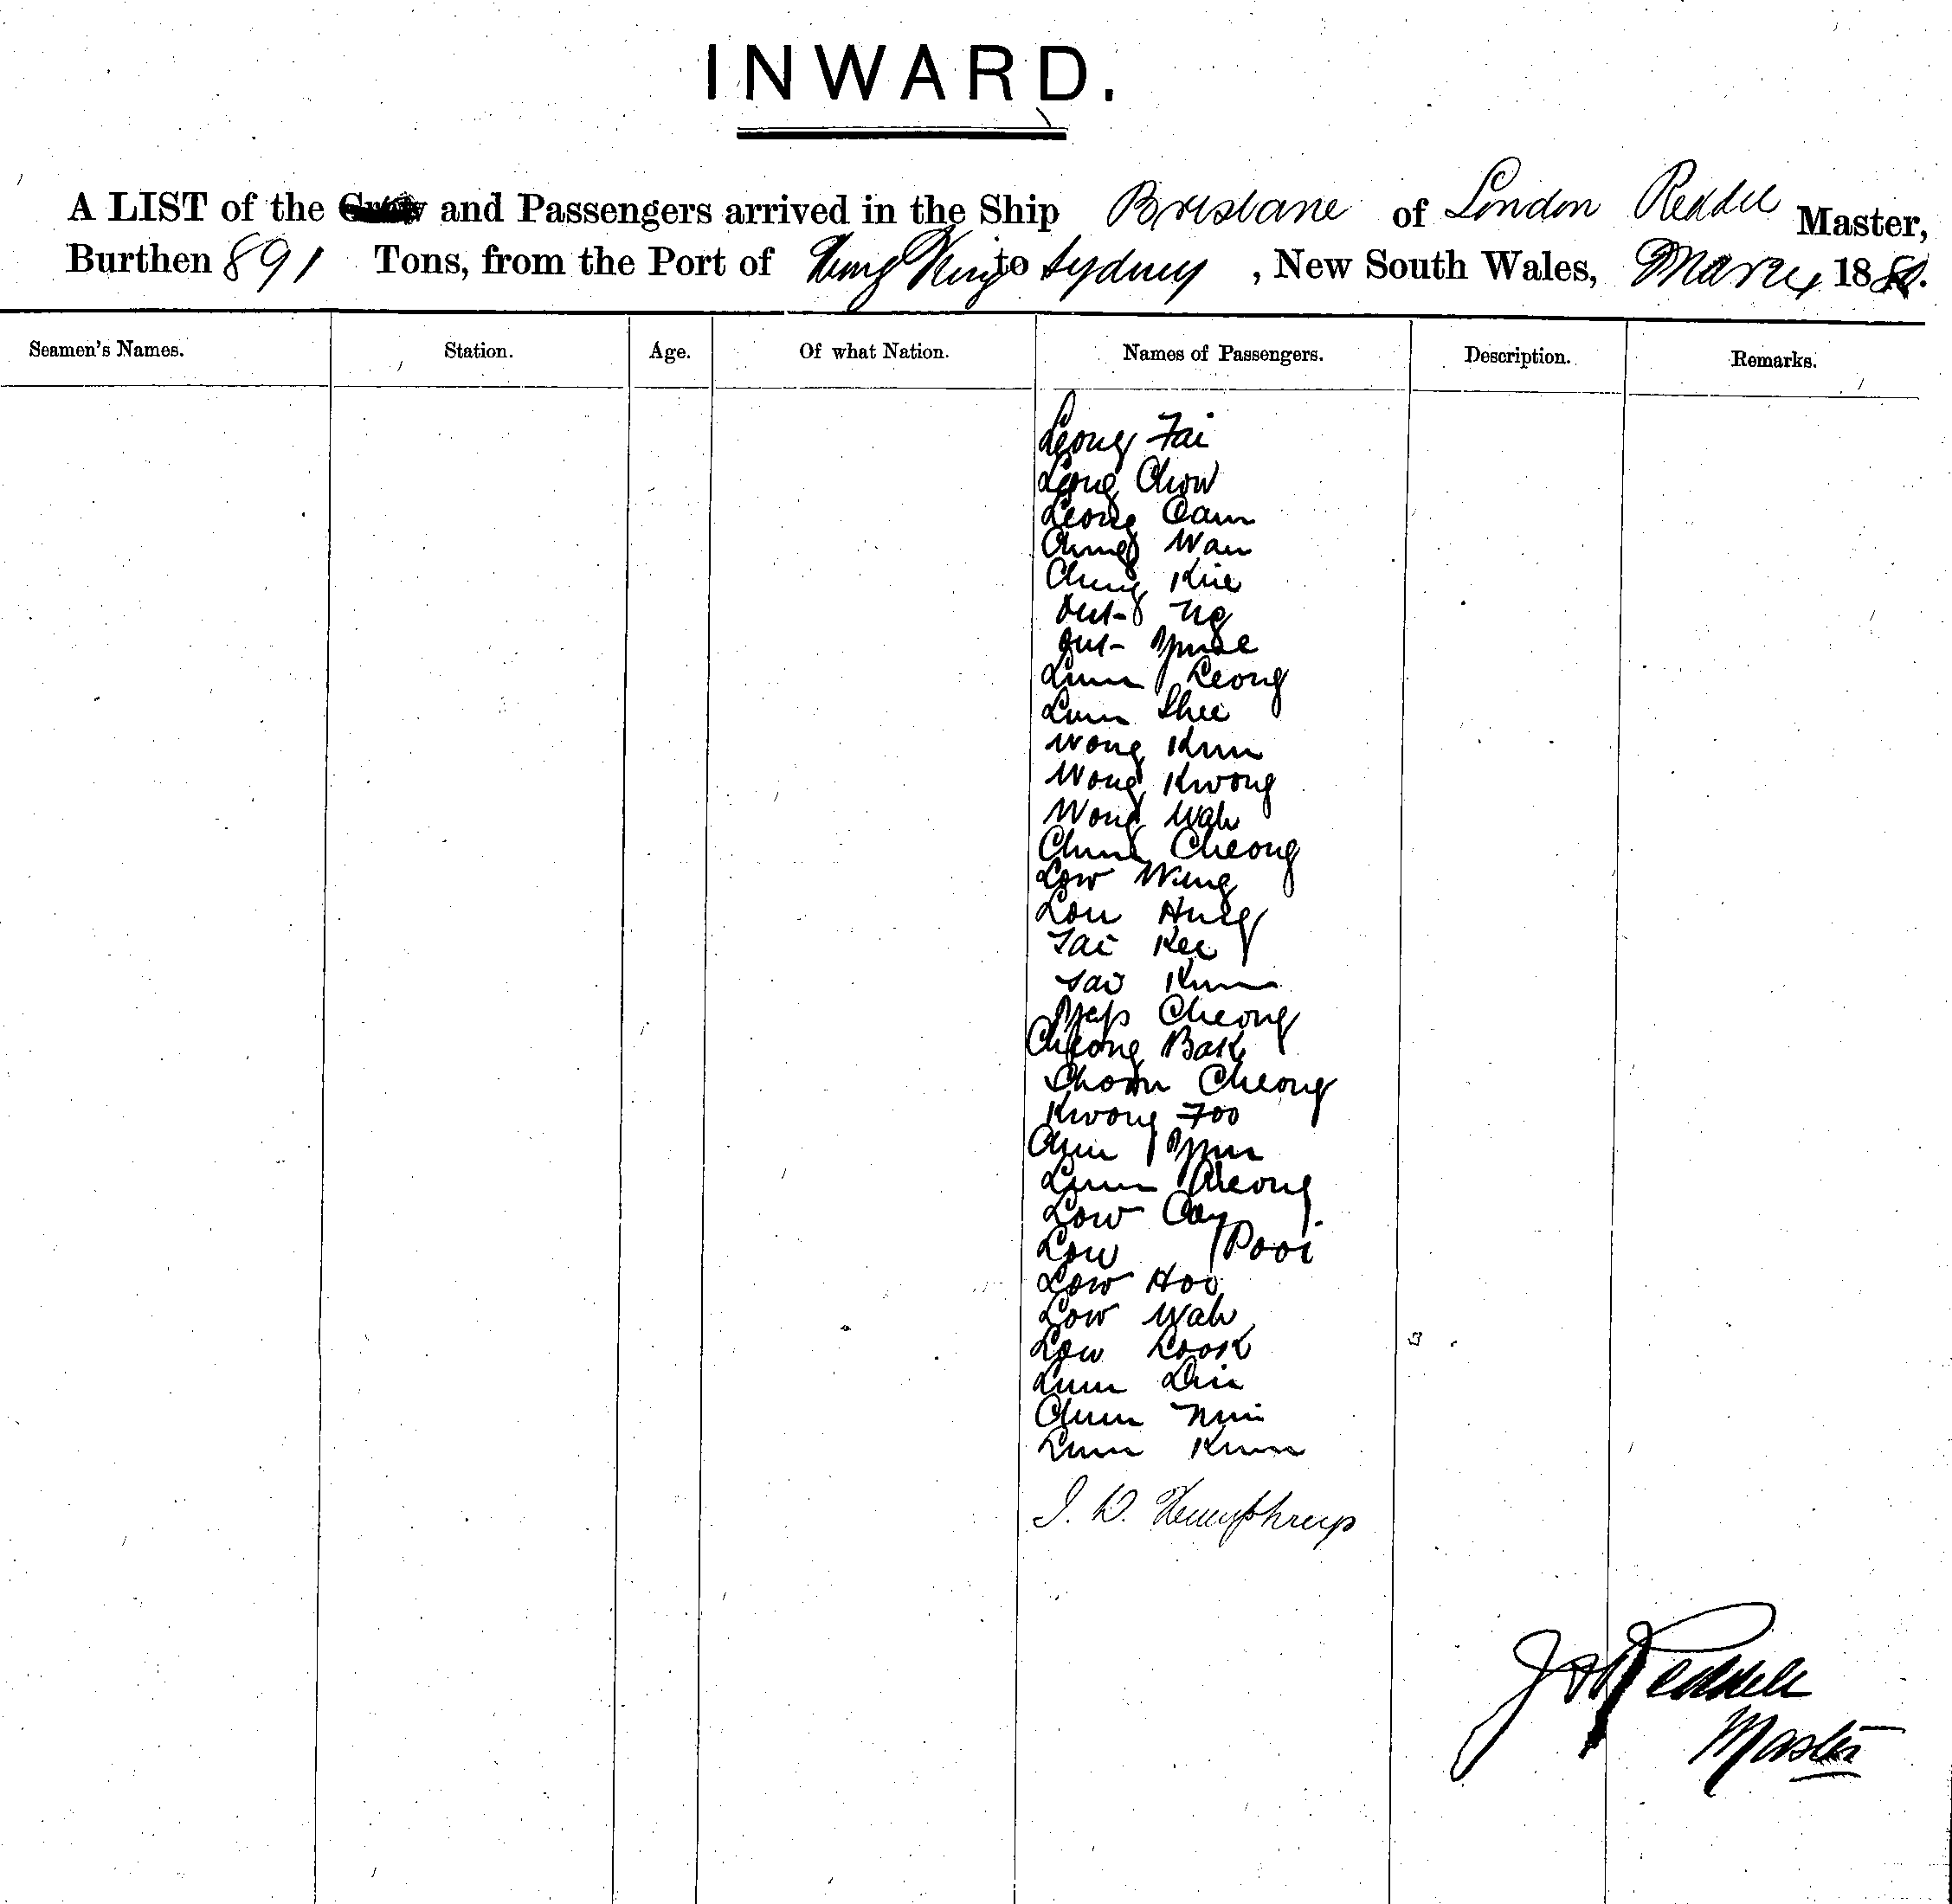 INWARD.
A LIST of the Crew and Passengers arrived in the Ship Brisbane of London Reddell Master,
Burthen 891 Tons, from the Port of Hong Kong to Sydney, New South Wales, 18
Seamen's Names. Station. Age. Of what Nation. Names of Passengers. Description. Remarks.
Leong Fai
Leong Chow
Leong Cam
Chung Wan
Chung Kue
Ng
Lum Leong
Lum Shee
Wong Kum
Wong Kwong
Wong Wah
Chung Cheong
Low Wing
Low Hung
Tai Kee
Kum
Yap Cheong
Cheong Bak
Cheong
Kwong Foo
Lum Cheong
Low
Low Pooi
Low Hoo
Low Wah
Low Look
Lum
Chum
Lum Kum
Humphreys
Reddell
Master